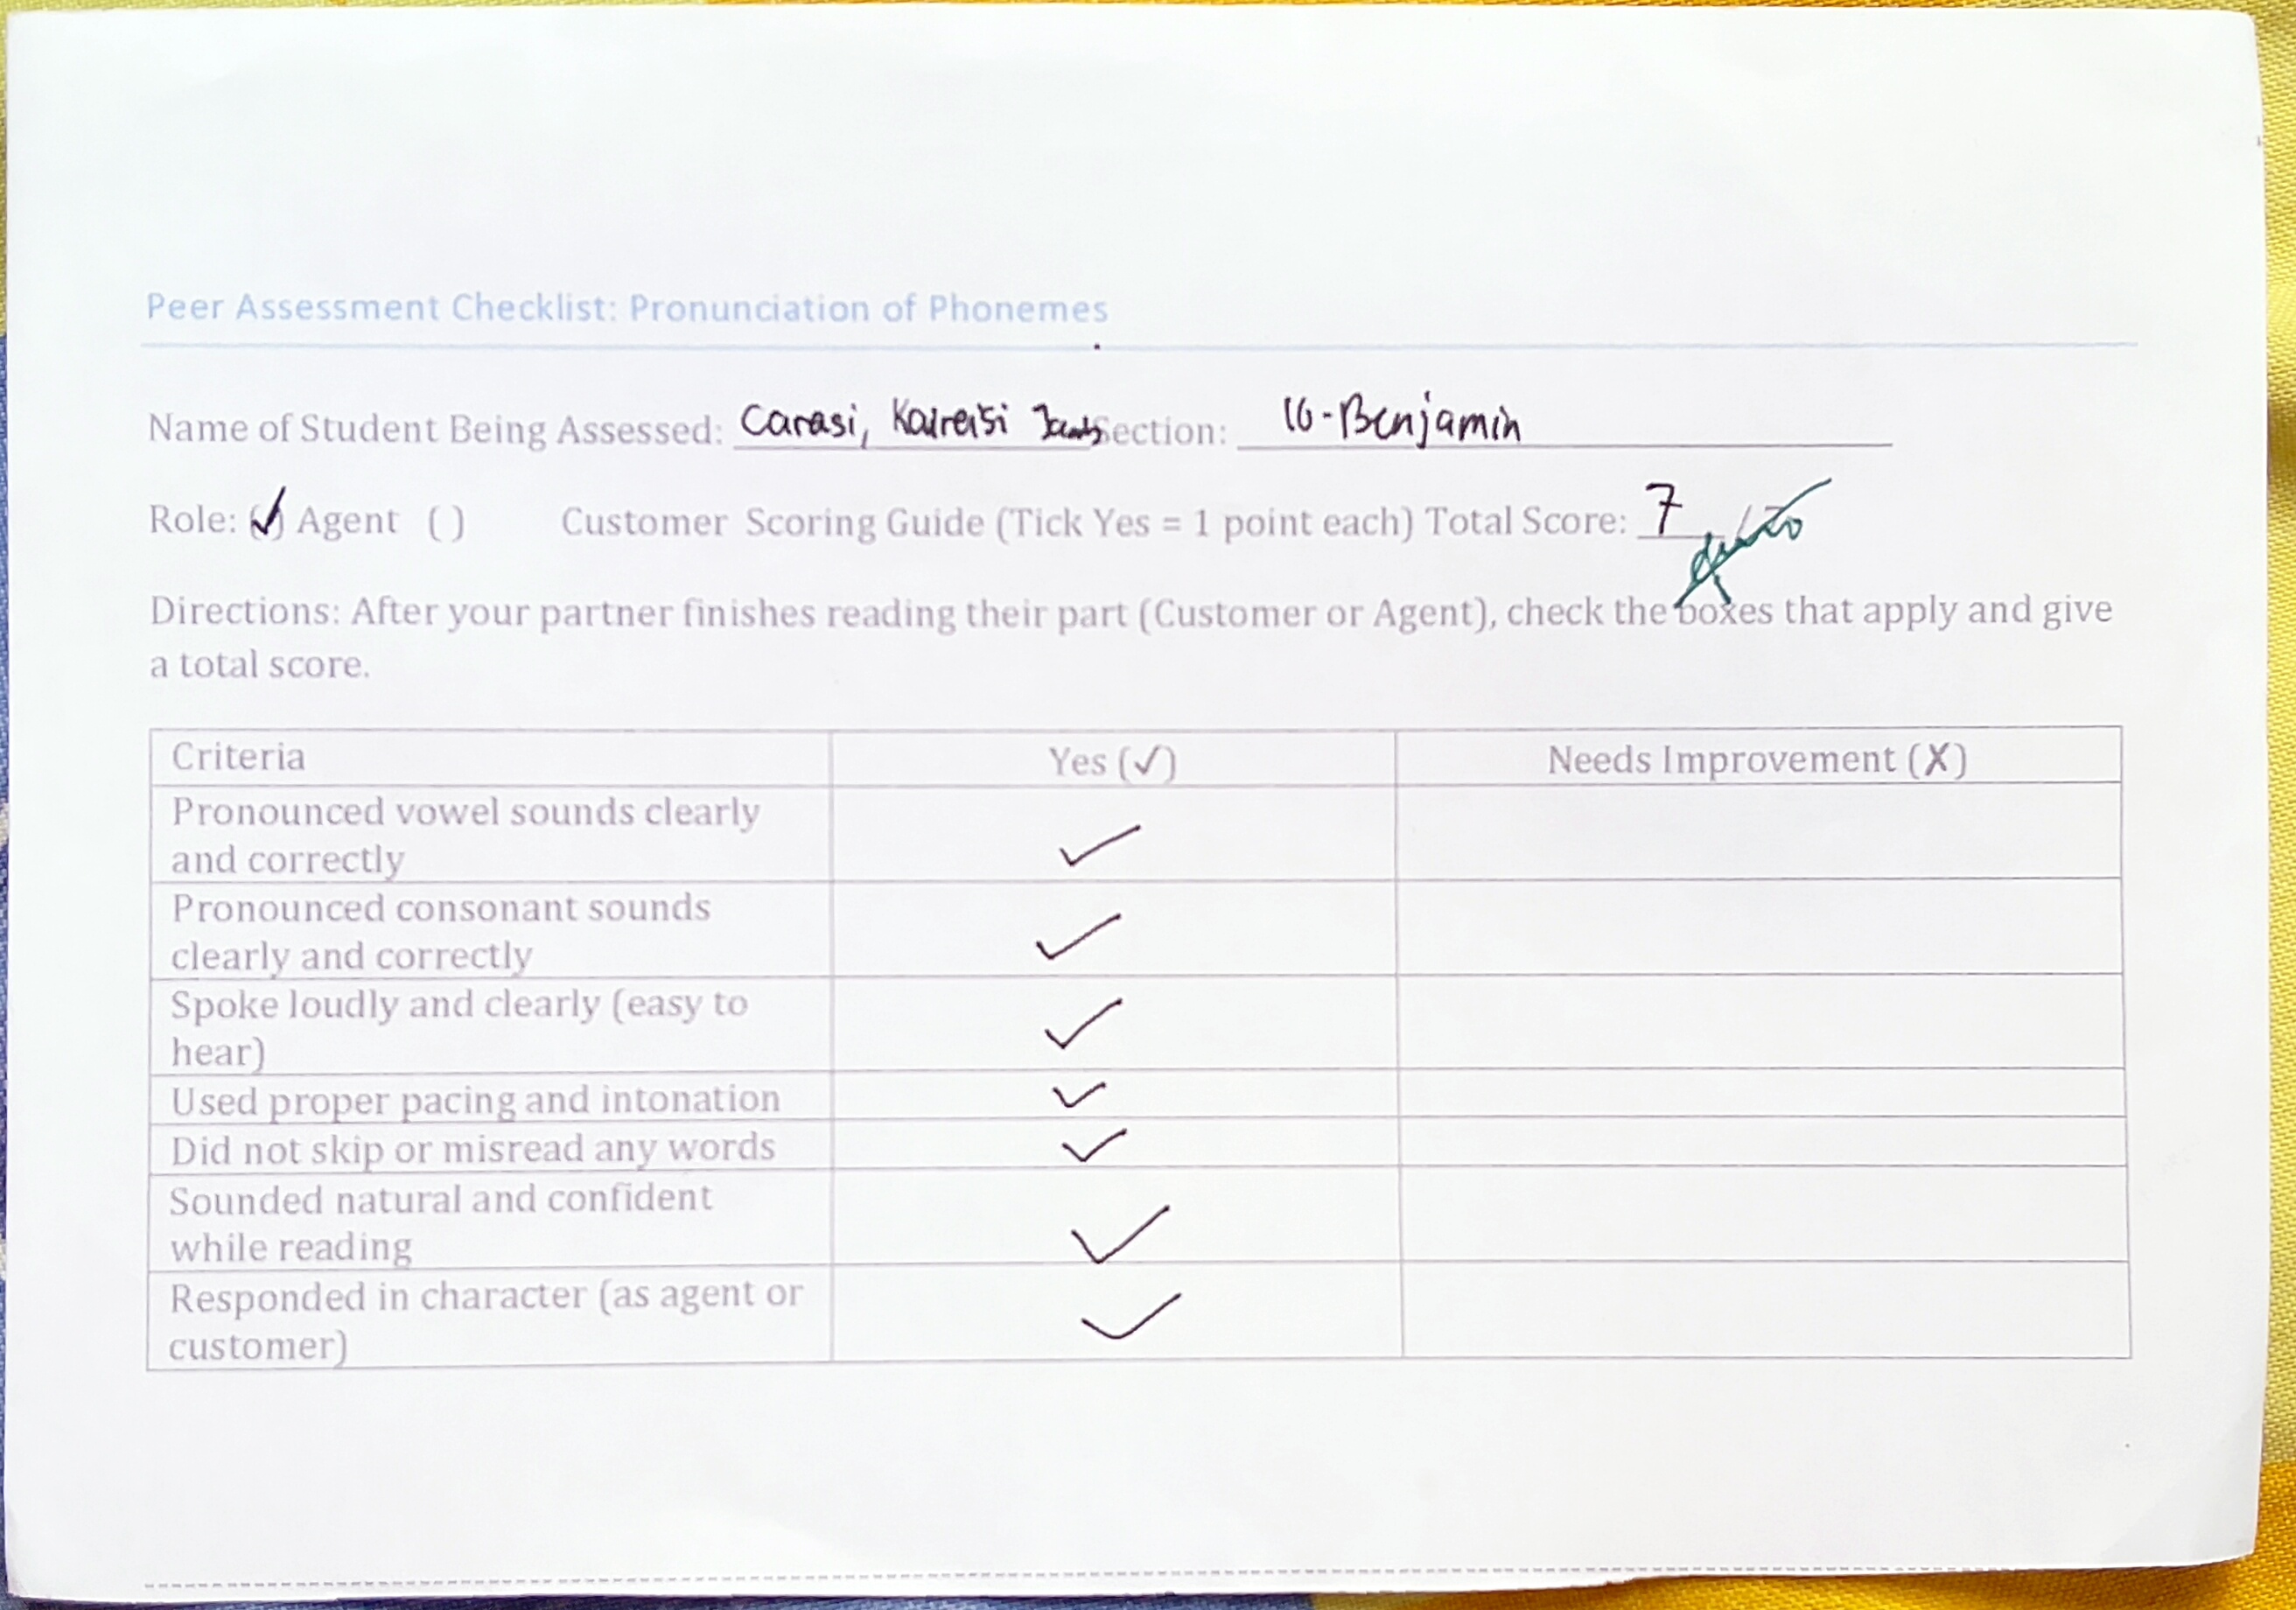 Peer Assessment Checklist: Pronunciation of Phonemes
Name of Student Being Assessed: Carasi, Section: 10-Benjamin
Role: (✓) Agent ( ) Customer Scoring Guide (Tick Yes = 1 point each) Total Score: 7
Directions: After your partner finishes reading their part (Customer or Agent), check the boxes that apply and give
a total score.
Criteria Yes (✓) Needs Improvement (X)
Pronounced vowel sounds clearly ✓
and correctly
Pronounced consonant sounds ✓
clearly and correctly
Spoke loudly and clearly (easy to ✓
hear)
Used proper pacing and intonation ✓
Did not skip or misread any words ✓
Sounded natural and confident ✓
while reading
Responded in character (as agent or ✓
customer)